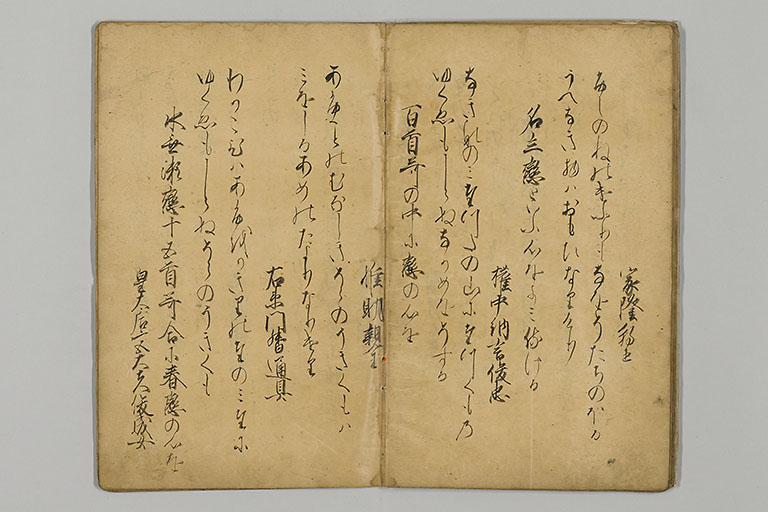 家隆朝臣
ふしのねの煙もなをそたちのほる
うへなき物はおもひなりけり
名立恋といふ心をよみ侍ける
権中納言俊忠
なきなのみたつたの山にたつくもの
ゆくゑもしらぬなかめをそする
百首哥の中に恋の心を
惟明親王
あふことのむなしきそらのうきくもは
みをしるあめのたよりなりけり
右衛門督通具
わかこひはあふをかきりのたのみたに
ゆくゑもしらぬそらのうきくも
水無瀬恋十五首哥合に春恋の心を
皇太后宮大夫俊成女